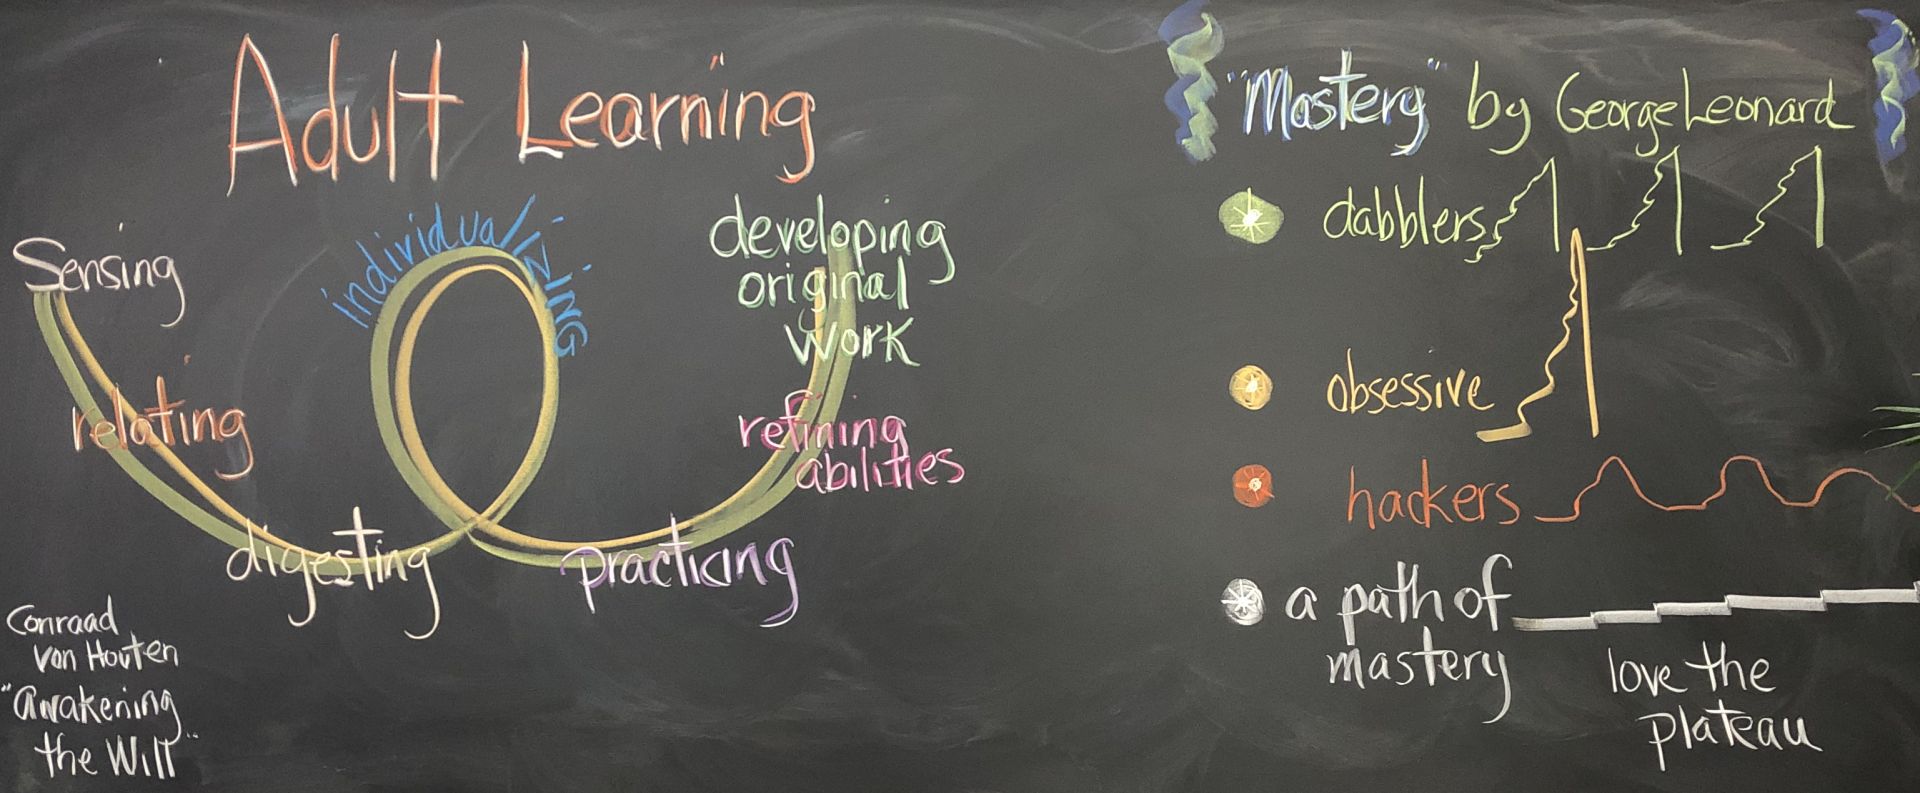 Adult Learning
Sensing
relating
digesting
individualizING
practicing
refining
abilities
developing
original
work
Conraad
van Houten
"Awakening
the Will"
"Mastery" by George Leonard
dabblers
obsessive
hackers
a path of
mastery
love the
plateau